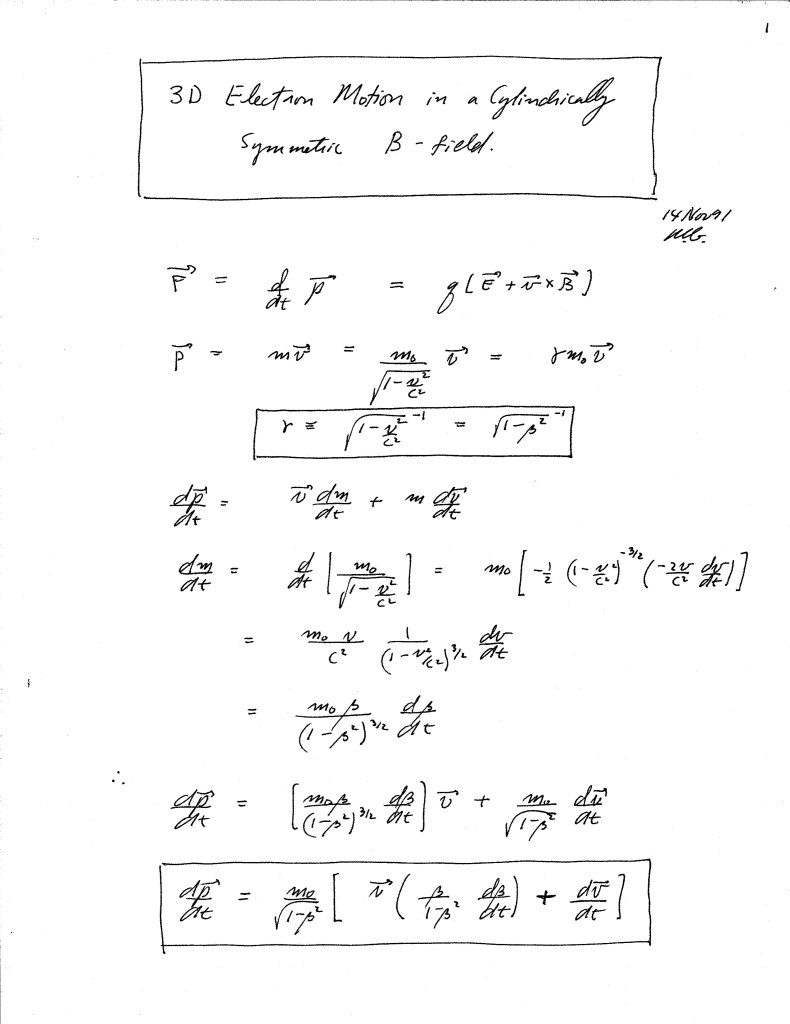 1
3D Electron Motion in a Cylindrically
Symmetric B-field.
14 Nov 91
F⃗ = d/dt p⃗ = q[E⃗ + v⃗ × B⃗]
p⃗ = mv⃗ = m₀/√(1-v²/c²) v⃗ = γm₀v⃗
γ ≡ √(1-v²/c²)⁻¹ = √(1-β²)⁻¹
dp⃗/dt = v⃗ dm/dt + m dv⃗/dt
dm/dt = d/dt [m₀/√(1-v²/c²)] = m₀[-1/2 (1-v²/c²)^(-3/2) (-2v/c² dv/dt)]
= m₀v/c² 1/(1-v²/c²)^(3/2) dv/dt
= m₀β/(1-β²)^(3/2) dβ/dt
∴
dp⃗/dt = [m₀β/(1-β²)^(3/2) dβ/dt] v⃗ + m₀/√(1-β²) dv⃗/dt
dp⃗/dt = m₀/√(1-β²) [v⃗(β/(1-β²) dβ/dt) + dv⃗/dt]